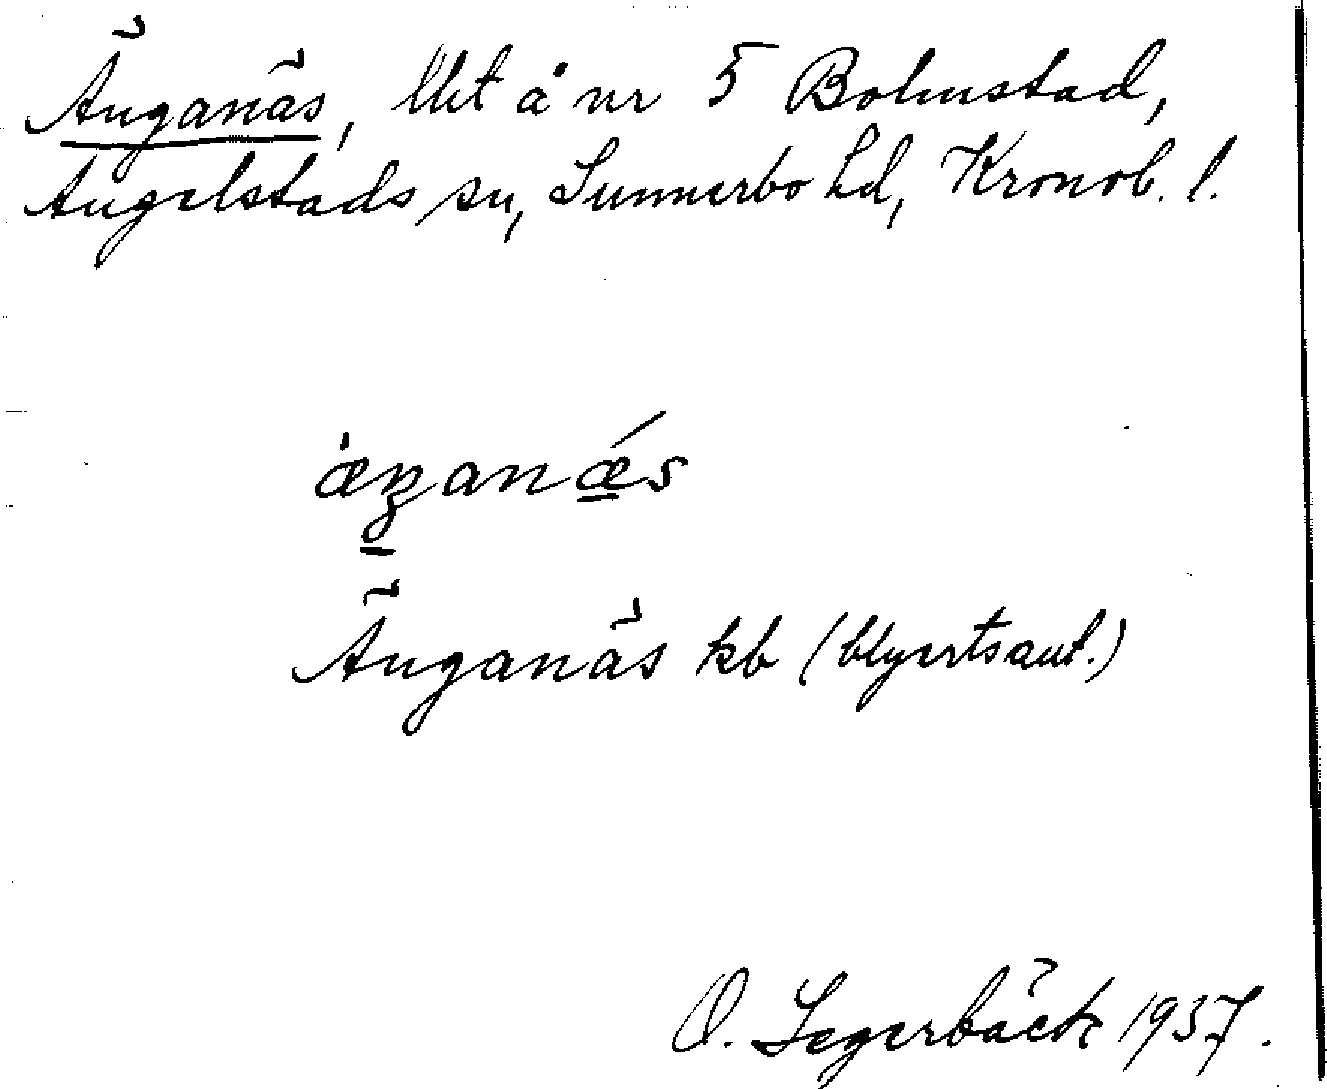 Änganäs, lht å nr 5 Bolmstad,
Angelstads sn, Sunnerbo hd, Kronob. l.
Änganäs kb (blyertsant.)
O. Segerbäck 1937.